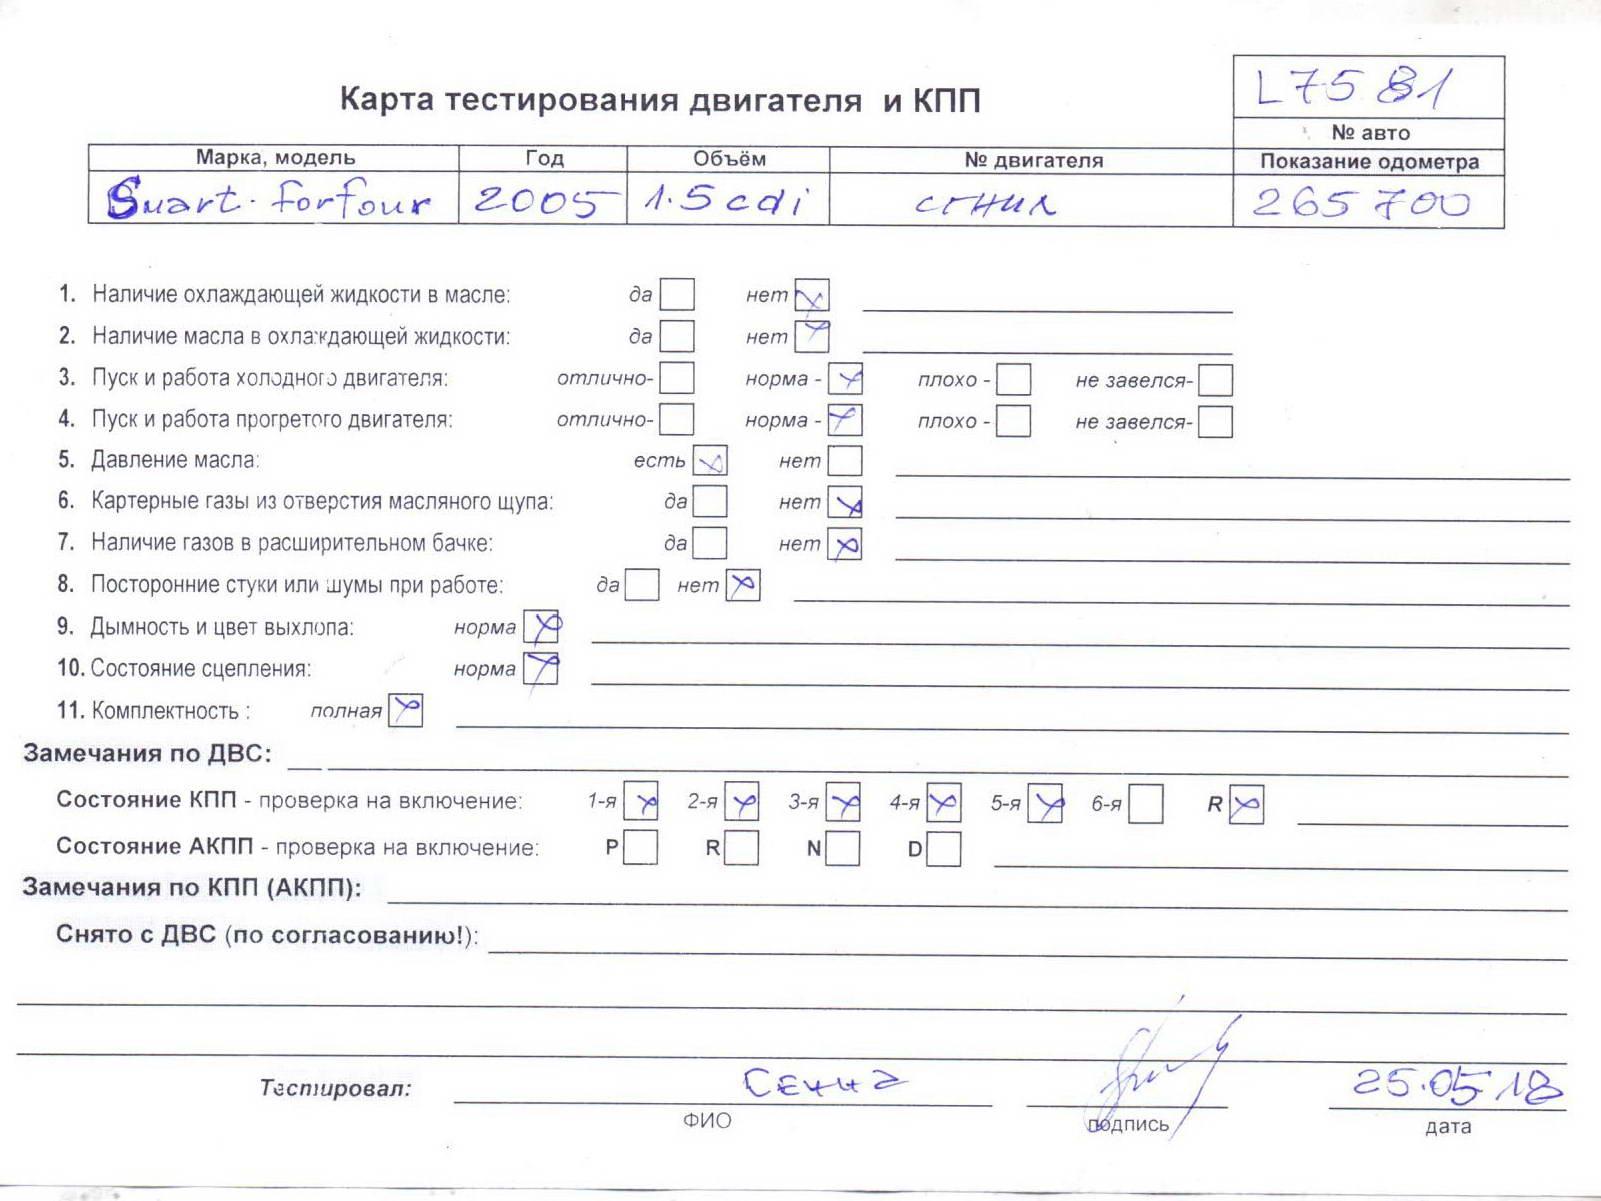 L7581
Карта тестирования двигателя и КПП
№ авто
Марка, модель Год Объём № двигателя Показание одометра
Smart. forfour 2005 1.5 cdi сгнил 265 700
1. Наличие охлаждающей жидкости в масле: да нет
2. Наличие масла в охлаждающей жидкости: да нет
3. Пуск и работа холодного двигателя: отлично- норма - плохо - не завелся-
4. Пуск и работа прогретого двигателя: отлично- норма - плохо - не завелся-
5. Давление масла: есть нет
6. Картерные газы из отверстия масляного щупа: да нет
7. Наличие газов в расширительном бачке: да нет
8. Посторонние стуки или шумы при работе: да нет
9. Дымность и цвет выхлопа: норма
10. Состояние сцепления: норма
11. Комплектность : полная
Замечания по ДВС:
Состояние КПП - проверка на включение: 1-я 2-я 3-я 4-я 5-я 6-я R
Состояние АКПП - проверка на включение: P R N D
Замечания по КПП (АКПП):
Снято с ДВС (по согласованию!):
Тестировал: 25.05.18
ФИО подпись дата